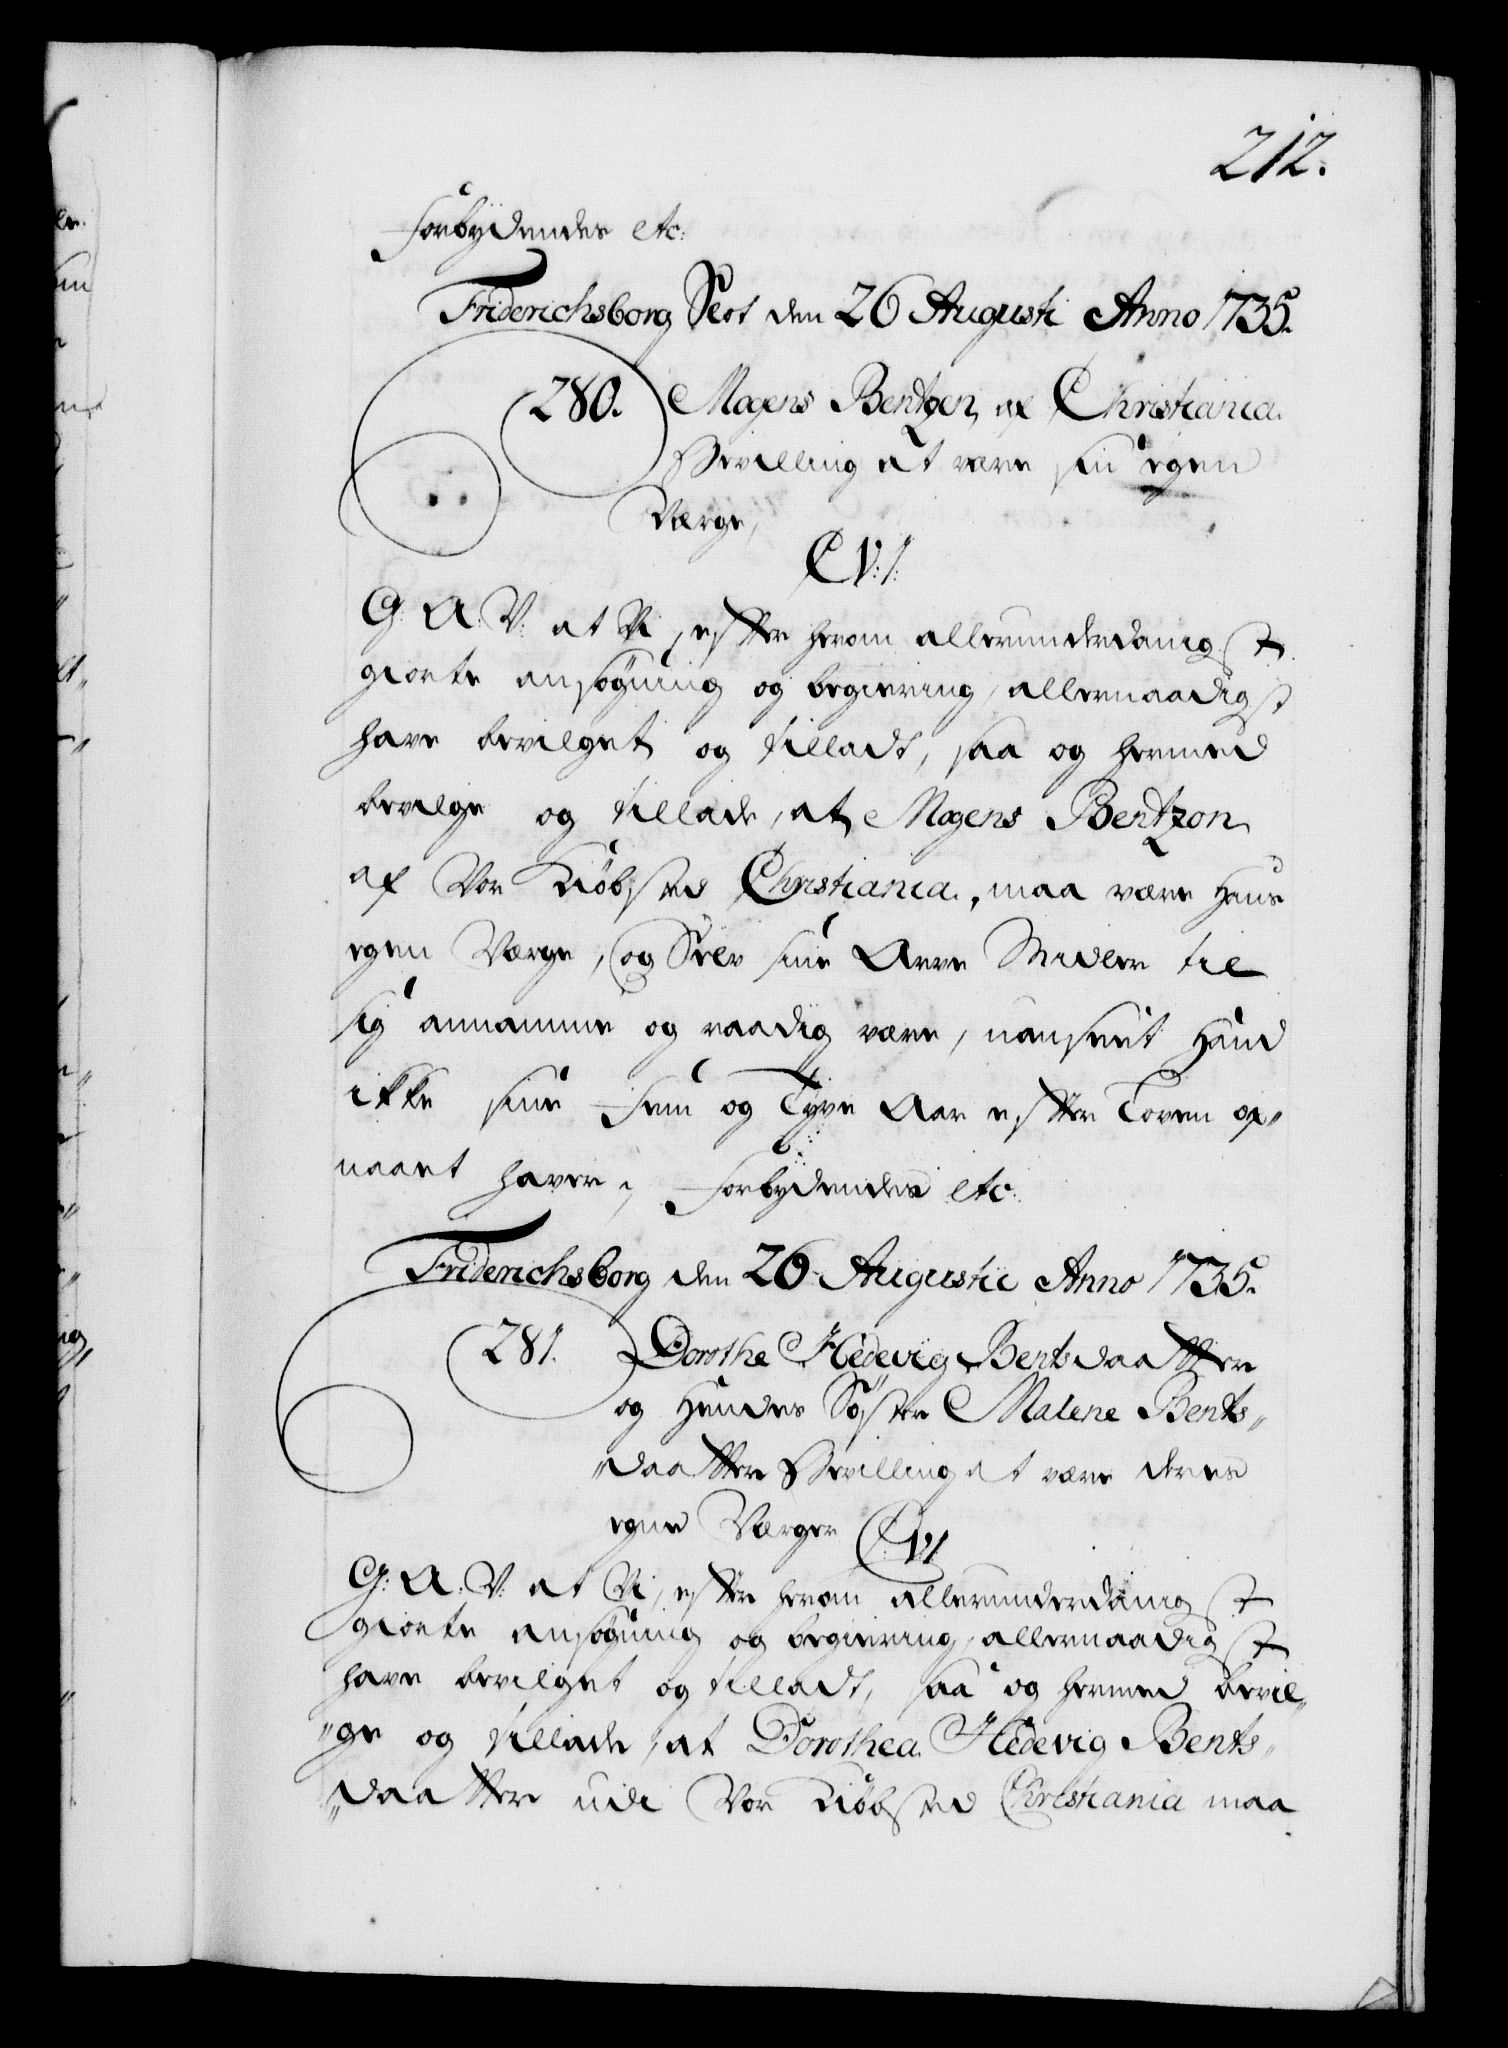 212.
Forbydendes etc:
Friderichsborg Slot den 26 Augusti Anno 1735.
280. Mogens Bentzen af Christiania.
Bevilling at være sin egen
Værge,
C V: I:
G: A: V: at Vi, efter herom allerunderdanigst
giorte ansøgning og begiering, allernaadigst
have bevilget og tilladt, saa og hermed
bevilge og tillade, at Mogens Bentzon
af Vor Kiøbsted Christiania, maa være hans
egen Værge, og Selv sine Arve Midler til
sig annamme og raadig være, uanseet hand
ikke sine Fem og Tyve Aar efter Loven op„
naaet haver; Forbydendes etc:
Friderichsborg den 26 Augustii Anno 1735.
281. Dorothe Hedevig Bentsdaatter
og hendes Søster Malene Bents„
„daatter Bevilling at være deres
egne Værger C V I
G: A: V: at Vi, efter herom allerunderdanigst
giorte ansøgning og begiering, allernaadigst
have bevilget og tilladt, saa og hermed bevil„
„ge og tillade, at Dorothea Hedevig Bents„
„daatter udi Vor Kiøbsted Christiania maa